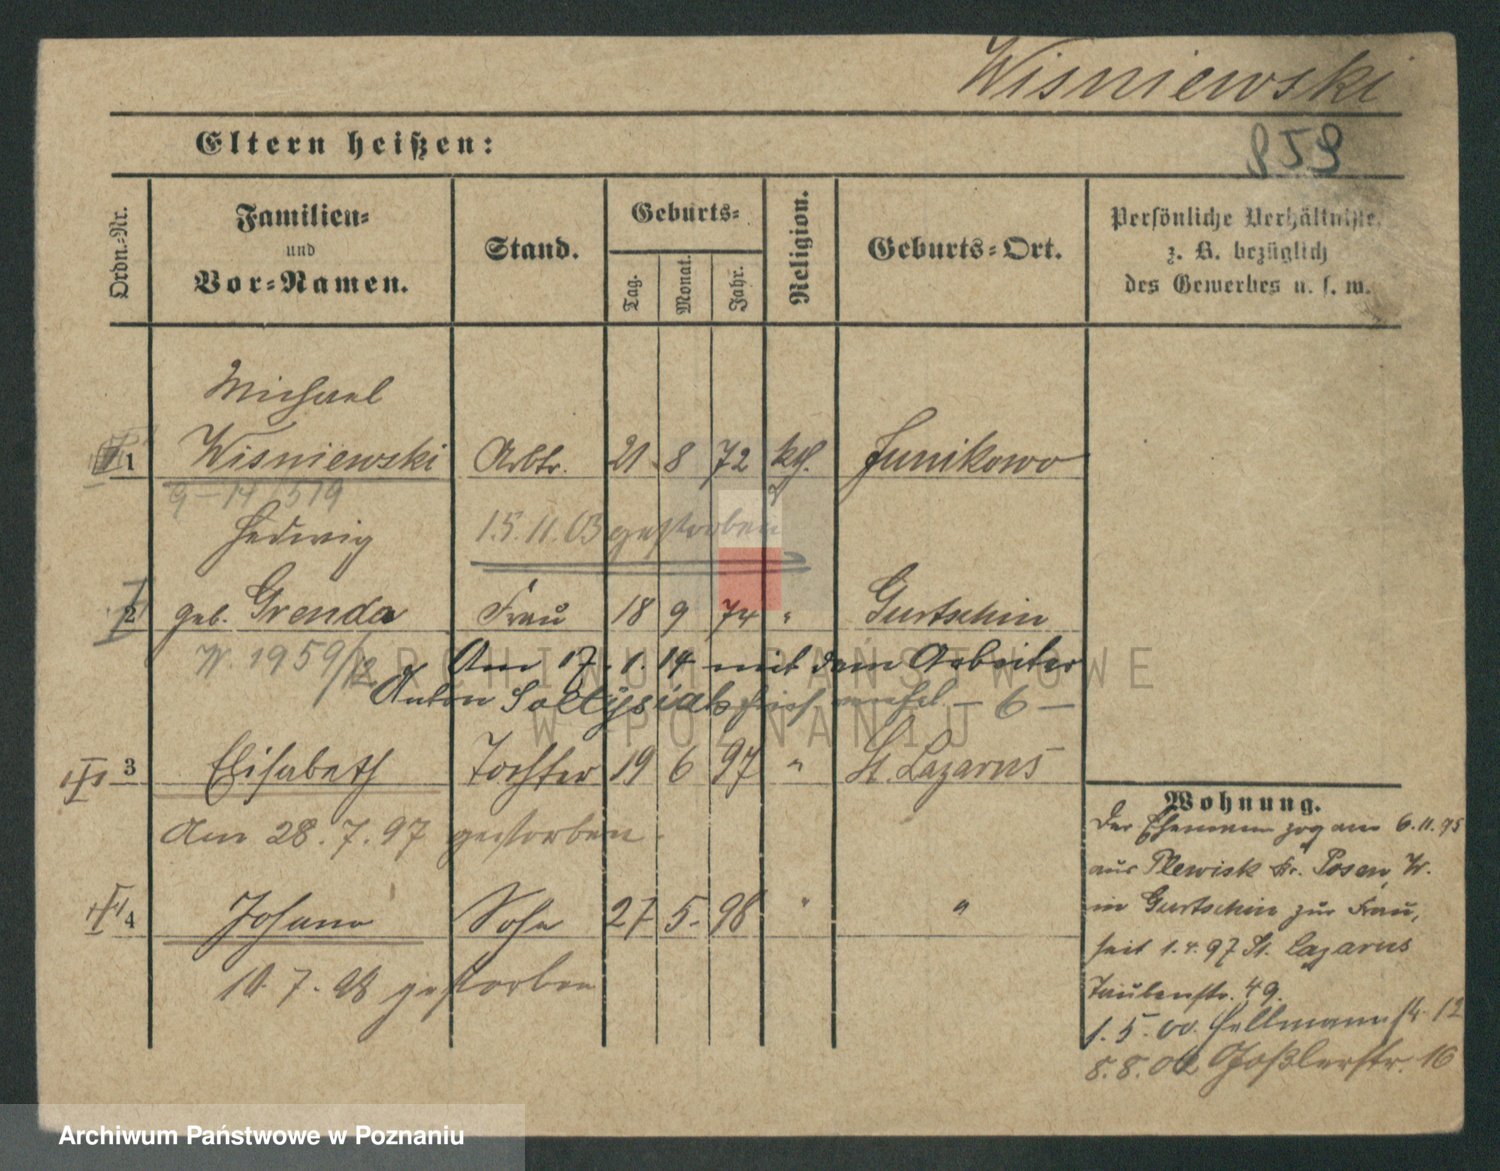 Wisniewski
853
Eltern heißen:
Ordn.-Nr.
Familien-
und
Vor-Namen.
Stand.
Geburts-
Tag.
Monat.
Jahr.
Religion.
Geburts-Ort.
Persönliche Verhältnisse,
z. B. bezüglich
des Gewerbes u. s. w.
Michael
1 Wisniewski Arbtr. 21 8 72 kth. Junikowo
9-14/519
Hedwig 15.11.03 gestorben
2 geb. Grenda Frau 18 9 74 " Gurtschin
W. 1959/12 Am 17.1.14 mit dem Arbeiter
Anton Soltysiak - 6 -
3 Elisabeth Tochter 19 6 97 " St. Lazarus
Am 28.7.97 gestorben.
4 Johann Sohn 27 5. 98 " "
10.7.98 gestorben
Wohnung.
Der Ehemann zog am 6.11.95
aus Plewisk Kr. Posen W.
in Gurtschin zur Frau,
seit 1.4.97 St. Lazarus
Taubenstr. 49.
1.5.00. Hellmannstr. 12
8.8.02 Goßlerstr. 16
ARCHIWUM PAŃSTWOWE
W POZNANIU
Archiwum Państwowe w Poznaniu